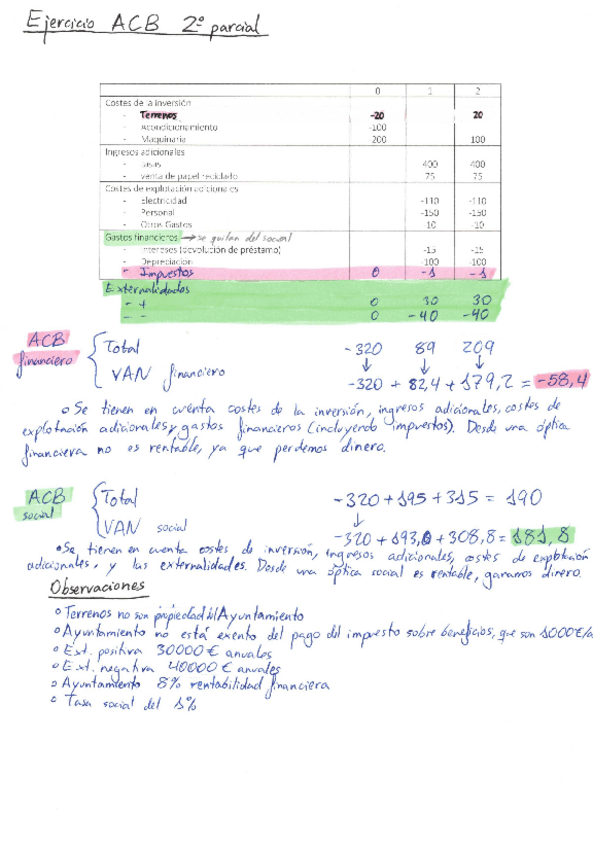 Ejercicio ACB 2º parcial
0 1 2
Costes de la inversión
- Terrenos -20 20
- Acondicionamiento -100
- Maquinaria 200 100
Ingresos adicionales
- 400 400
- venta de papel reciclado 75 75
Costes de explotación adicionales
- Electricidad -110 -110
- Personal -150 -150
- Otros Gastos 10 10
Gastos financieros → se quitan del social
- Intereses (devolución de préstamo) -15 -15
- Depreciación -100 -100
- Impuestos 0 -1 -1
Externalidades
- + 0 30 30
- - 0 -40 -40
ACB financiero
Total -320 89 209
VAN financiero -320 + 82,4 + 179,2 = -58,4
o Se tienen en cuenta costes de la inversión, ingresos adicionales, costes de
explotación adicionales y gastos financieros (incluyendo impuestos). Desde una óptica
financiera no es rentable, ya que perdemos dinero.
ACB social
Total -320 + 195 + 315 = 190
VAN social -320 + 193,0 + 308,8 = 181,8
• Se tienen en cuenta costes de inversión, ingresos adicionales, costes de explotación
adicionales, y las externalidades. Desde una óptica social es rentable, ganamos dinero.
Observaciones
o Terrenos no son propiedad del Ayuntamiento
o Ayuntamiento no está exento del pago del impuesto sobre beneficios, que son 1000€/a
o Ext. positiva 30000€ anuales
o Ext. negativa 40000€ anuales
o Ayuntamiento 8% rentabilidad financiera
o Tasa social del 1%